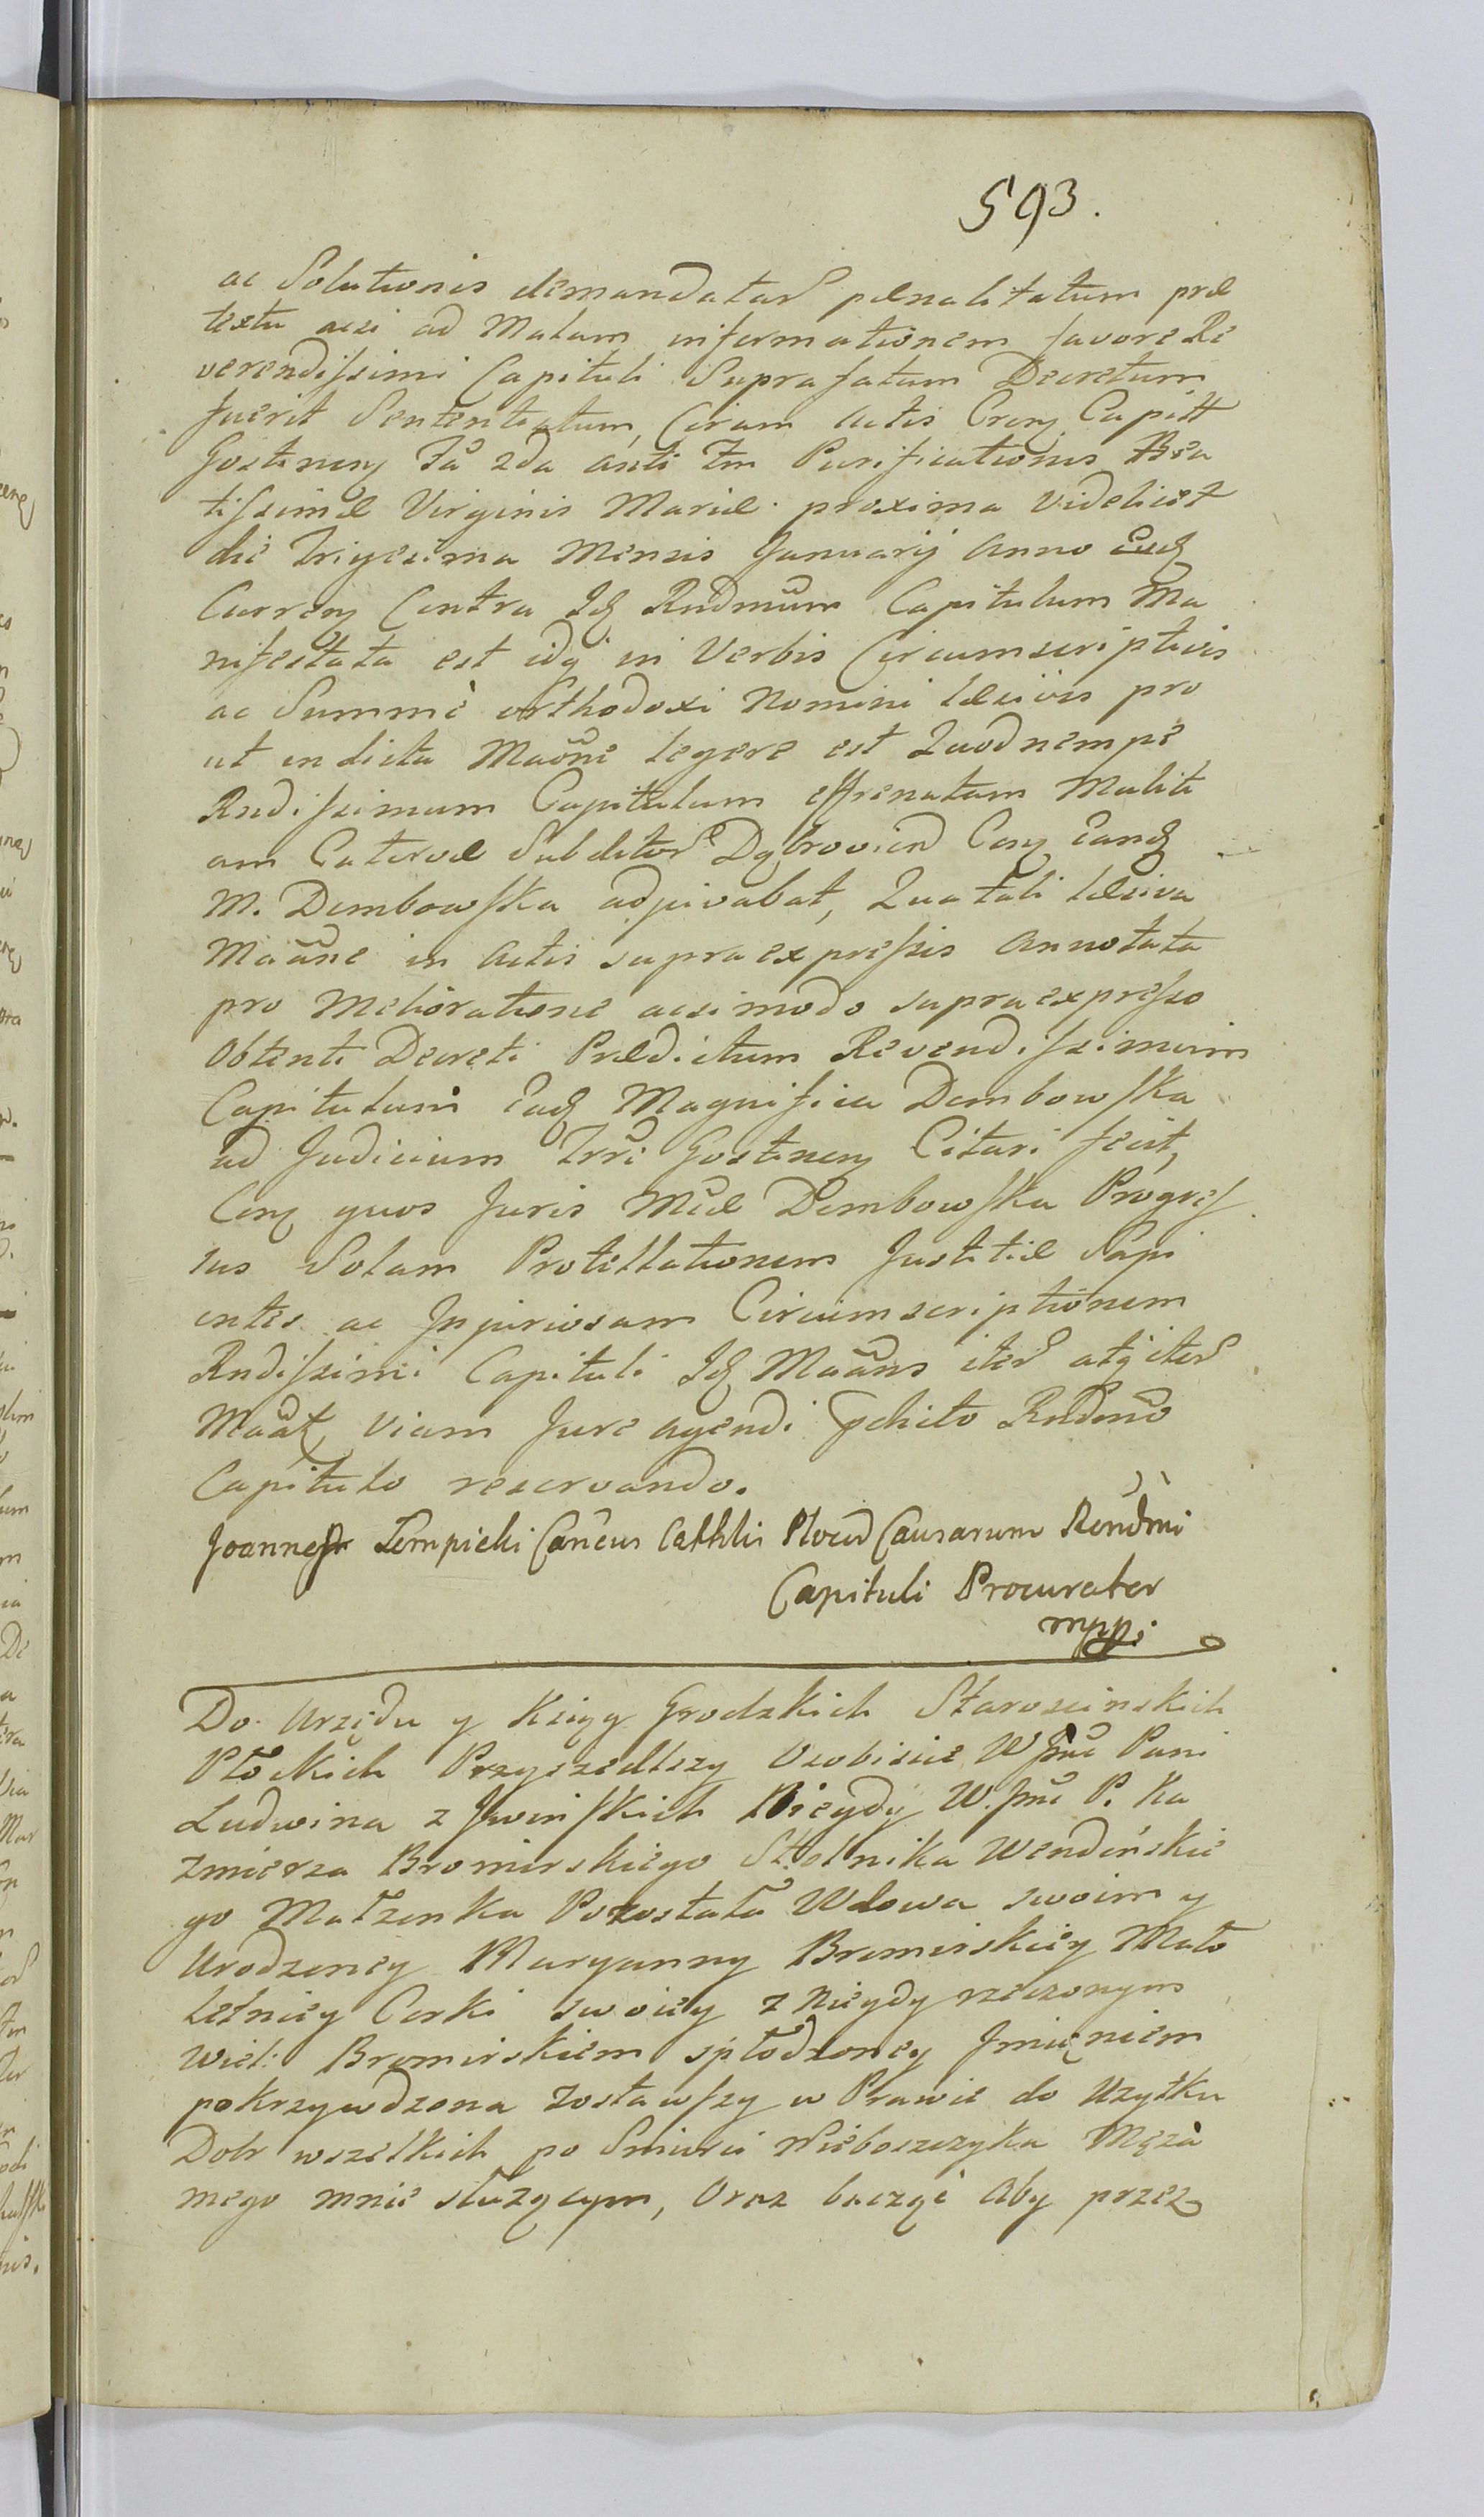 593.
ac Solutionis demandatar pænalitatum præ
textu acsi ad Malam informationem favore Re
verendissimi Capituli Suprafatum Decretum
fuerit Sententiatum, Coram Actis Cren Capitt
Gostinen Fa 2da anti Fm Purificationis Bea
tissimæ Virginis Mariæ proxima videlicet
die Trigesima Mensis Januarij Anno
Curren Contra Idq Rndmum Capitulum Ma
nifestata est idq in Verbis Circumscriptivis
ac Summè orthodoxi Nomini læsivis pro
ut in dicta Maõne legere est Quod nempè
Rndissimum Capitulum effrenatam Maliti
am Catervæ Subditor Dąbrovien Con Eandq
M. Dembowska adjuvabat, Qua tali læsiva
Maõne in Actis supra expressis Annotata
pro Melioratione acsi modo supra expresso
Obtenti Decreti Prædictum Revendissimum
Capitulum Eadq Magnifica Dembowska
ad Judicium Trri Gostinen Citari fecit,
Con quos Juris Mcæ Dembowska Progres
sus Solam Protellationem Justitiæ Sapi
entes ac Injuriosam Circumscriptionem
Rndissimi Capituli Idq Maãns iter atq iter
Maãt viam Jure agendi pchito Rndmo
Capitulo reservando.
Joannes Lempicki Cancus Cathlis Plocen Causarum Rendmi
Capituli Procurator
mppi
Do Urzędu y Xsiąg Grodzkich Starościnskich
Płockich Przyszedłszy Osobiscie WJmć Pani
Ludwina z Jwinskich Niegdy W. Jmć P. Ka
zmierza Bromirskiego Stolnika Wendeńskie
go Małzonka Pozostała Wdowa swoim y
Urodzoney Maryanny Bromirskiey Mało
letniey Corki swoiey z Niegdy rzeczonym
Wiel: Bromirskiem spłodzoney Jmięniem
pokrzywdzona zostawszy w Prawie do Uzytku
Dobr wszelkich po Smierci Nieboszczyka Męża
mego mnie słuzącym, Oraz bacząc Aby przez